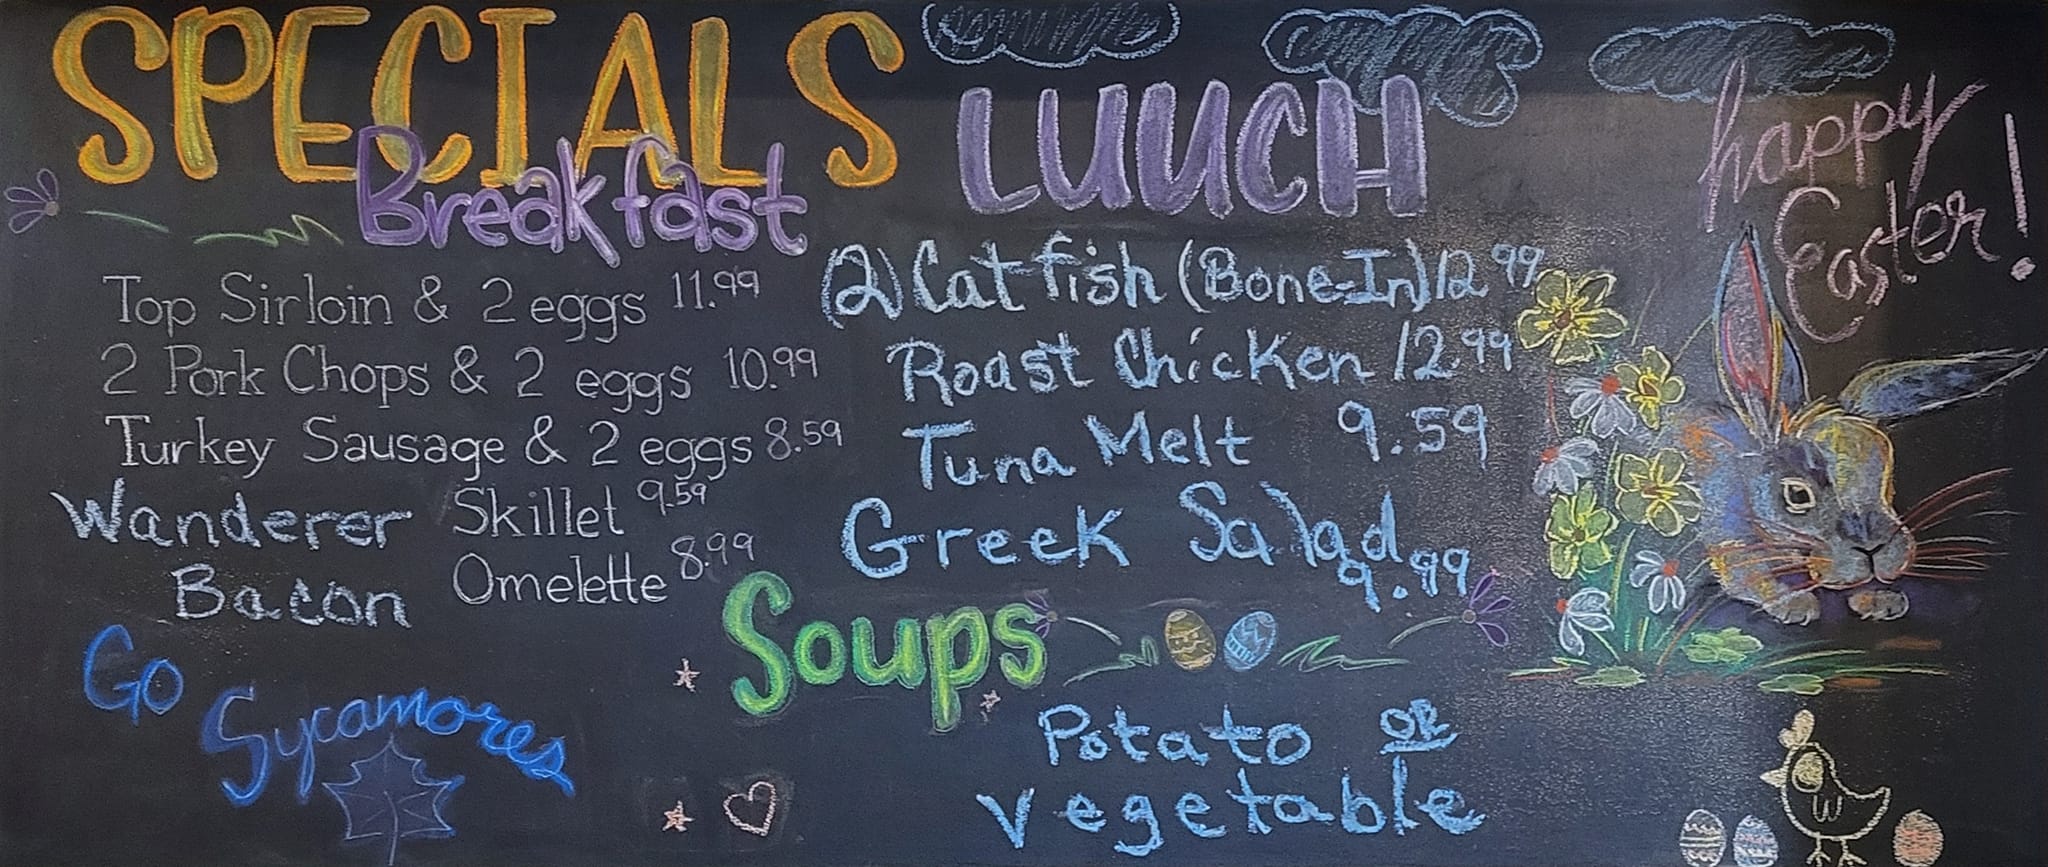 SPECIALS
Breakfast
Top Sirloin & 2 eggs 11.99
2 Pork Chops & 2 eggs 10.99
Turkey Sausage & 2 eggs 8.59
Wanderer Skillet 9.59
Bacon Omelette 8.99
Go
Sycamores
LUUCH
(2) Catfish (Bone-In) 12.99
Roast Chicken 12.99
Tuna Melt 9.59
Greek Salad 9.99
Soups
Potato OR
vegetable
happy
Easter!